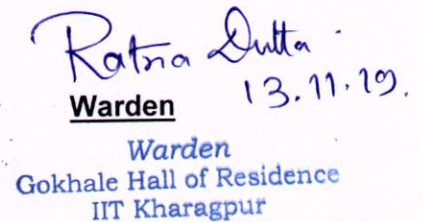 Ratna Dutta
13.11.19.
Warden
Warden
Gokhale Hall of Residence
IIT Kharagpur